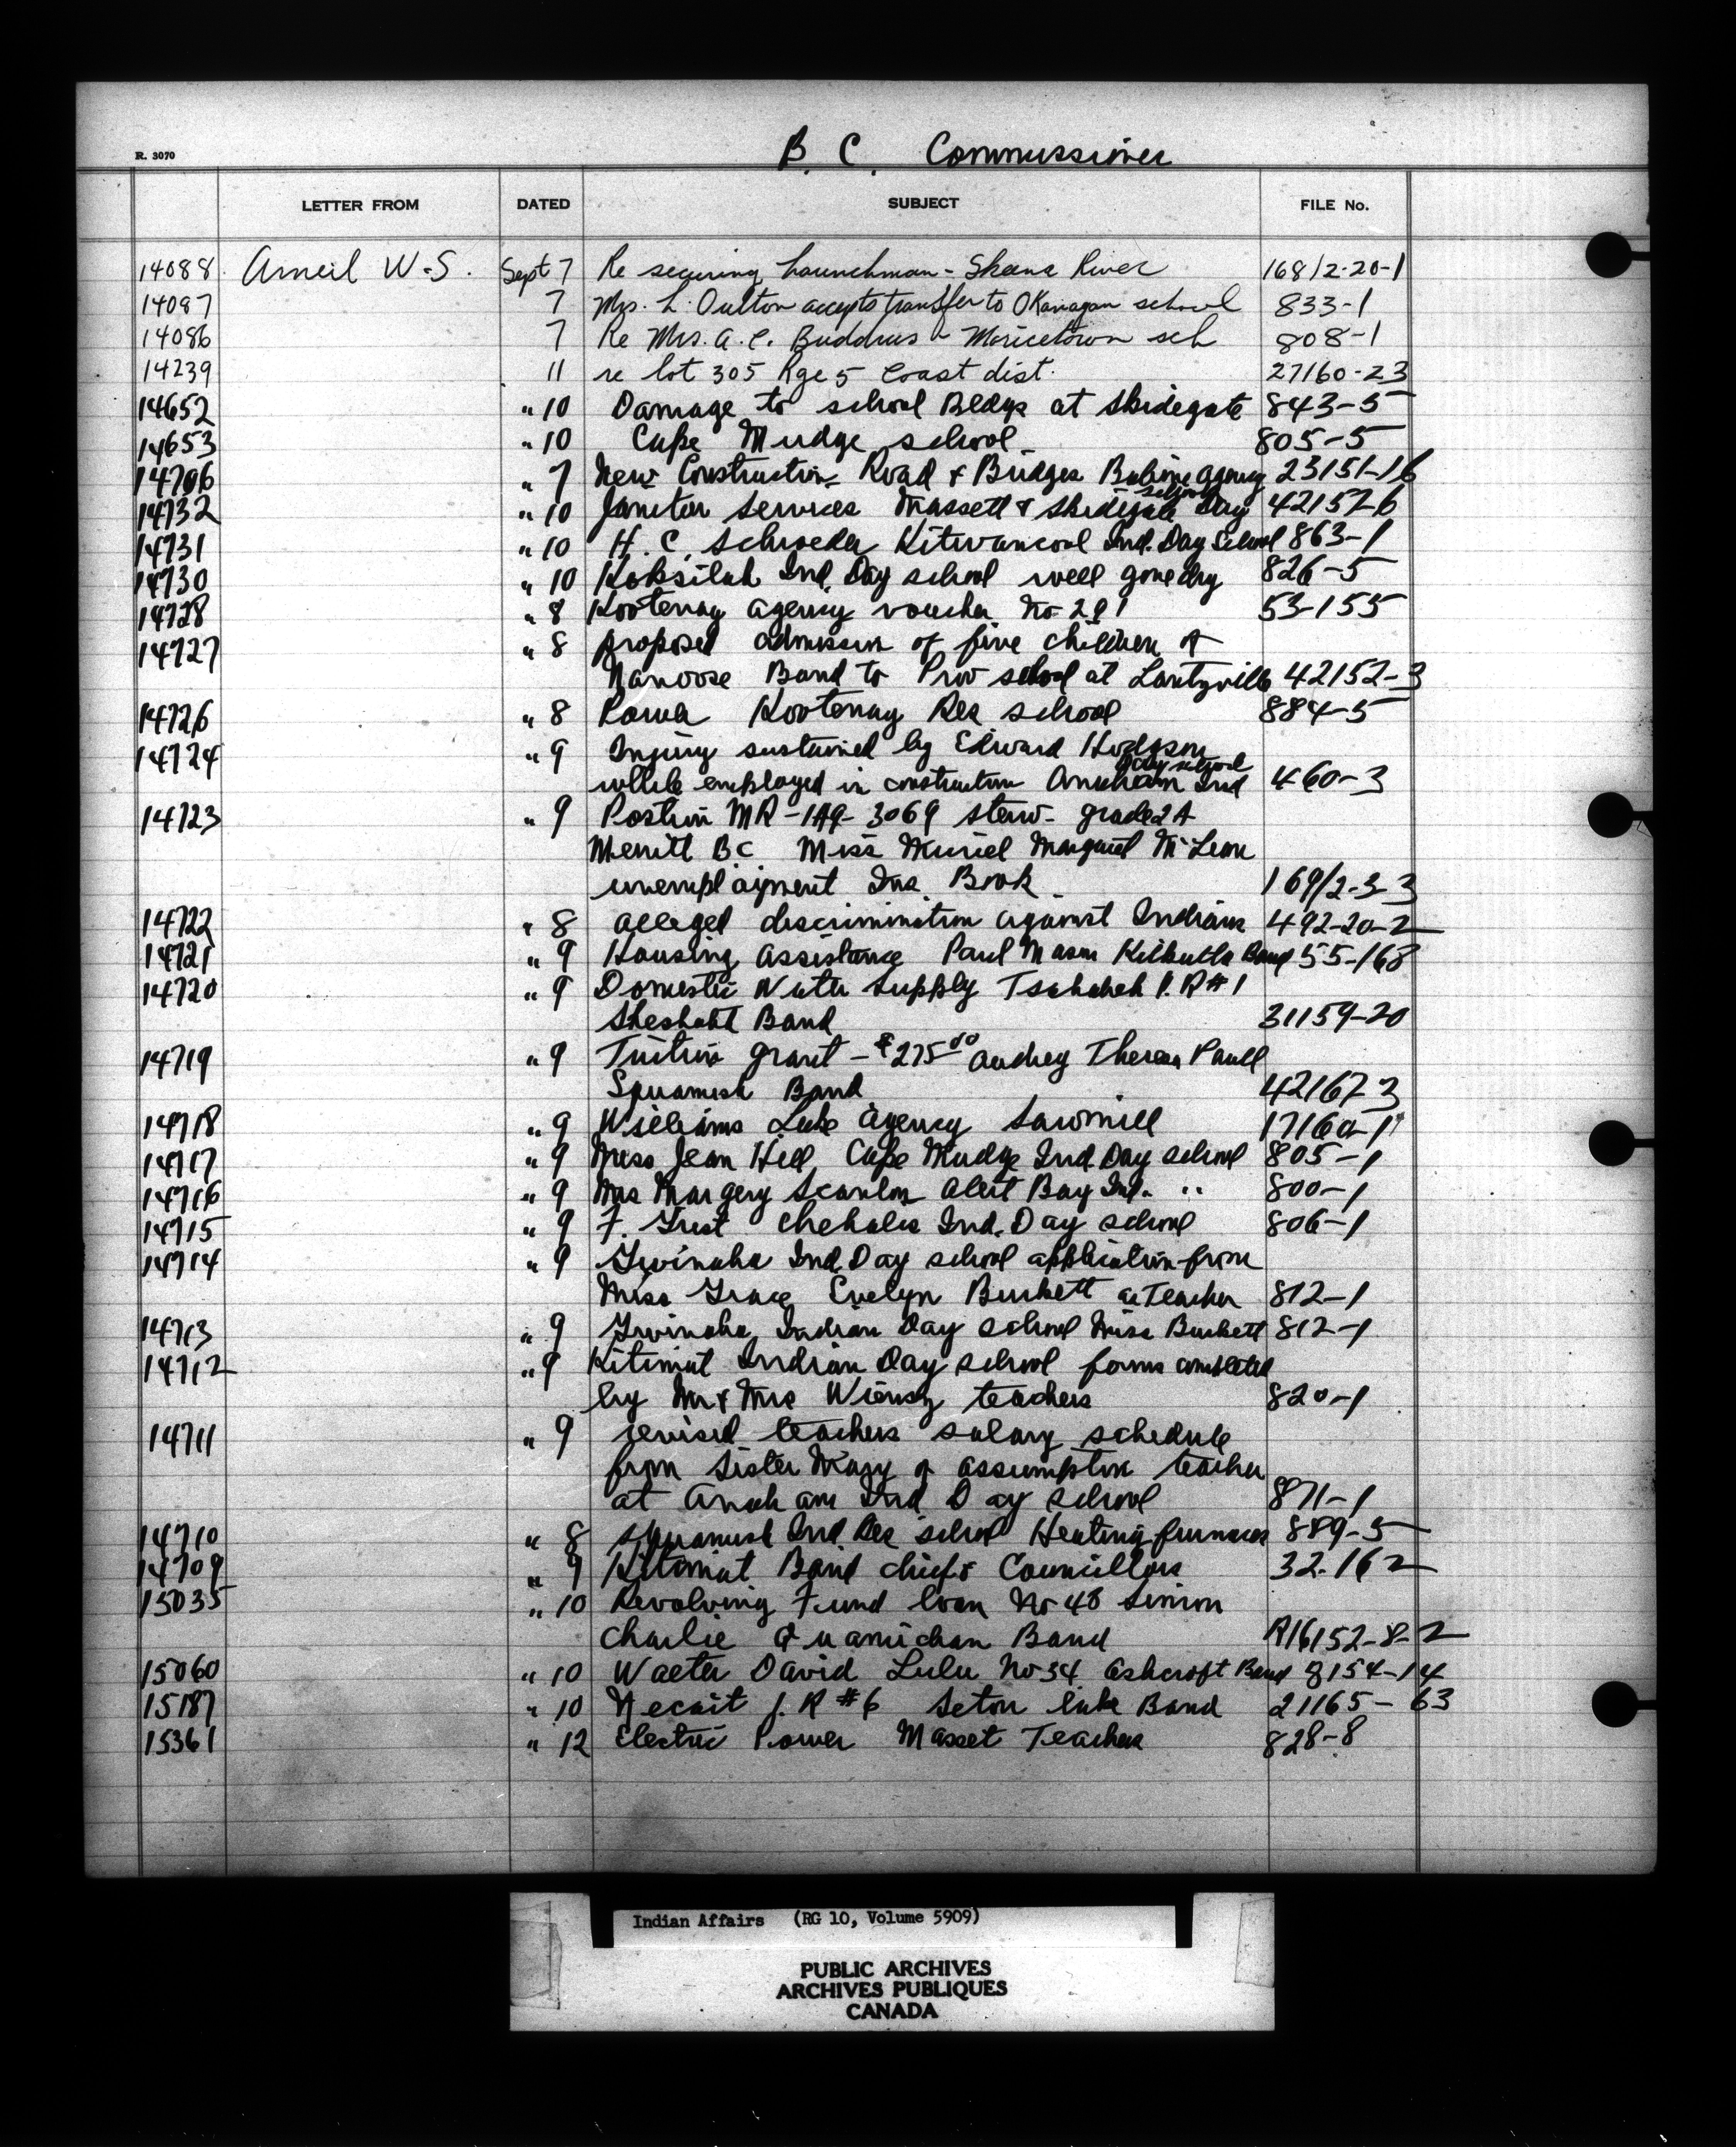 R. 3070
B. C. Commissioner
LETTER FROM DATED SUBJECT FILE No.
14088 Arneil W.S. Sept 7 Re securing Launchman - Skeena River 168/2-20-1
14087 7 Mrs. L. Oulton accepts transfer to Okanagan school 833-1
14086 7 Re Mrs. A. C. Buddrus - Moricetown sch 808-1
14239 11 re lot 305 Rge 5 Coast dist. 27160-23
14652 " 10 Damage to school Bldgs at Skidegate 843-5
14653 " 10 Cape Mudge school 805-5
14706 " 7 New Construction Road & Bridges Babine Agency 23151-16
14732 " 10 Janitor Services Massett & Skidegate Day school 42152-6
14731 " 10 H. C. Schroeder Kitwancool Ind. Day School 863-1
14730 " 10 Koksilah Ind. Day school well gone dry 826-5
14728 " 8 Kootenay Agency voucher No 291 53-155
14727 " 8 proposed admission of five children of
Nanoose Band to Prov school at Lantzville 42152-3
14726 " 8 Power Kootenay Res school 884-5
14724 " 9 Injury sustained by Edward Hodgson
while employed in construction Anaham Ind day school 460-3
14723 " 9 Position MR-1A9-3069 steno- grade 2A
Merritt B.C. Miss Muriel Margaret McLean
unemployment Ins. Book 169/2-3-3
14722 " 8 alleged discrimination against Indians 492-20-2
14721 " 9 Housing assistance Paul Mason Kitkatla Band 55-163
14720 " 9 Domestic Water Supply Tsahaheh I.R #1
Sheshaht Band 31159-20
14719 " 9 Tuition grant - $275.00 Audrey Theresa Paull
Squamish Band 42167-3
14718 " 9 Williams Lake Agency Sawmill 17160-1
14717 " 9 Miss Jean Hill, Cape Mudge Ind. Day school 805-1
14716 " 9 Mrs Margery Scanlon Alert Bay Ind. " 800-1
14715 " 9 F. Guest Chehalis Ind. Day school 806-1
14714 " 9 Gwinaha Ind. Day school application from
Miss Grace Evelyn Burkett as Teacher 812-1
14713 " 9 Gwinaha Indian Day school Miss Burkett 812-1
14712 " 9 Kitimat Indian Day school forms completed
by Mr & Mrs teachers 820-1
14711 " 9 revised teachers salary schedule
from Sister Mary of assumption teacher
at Anaham Ind Day school 871-1
14710 " 8 Squamish Ind Res school Heating furnaces 889-5
14709 " 9 Kitimat Band chief & Councillors 32-162
15035 " 10 Revolving Fund loan No 48 Simon
Charlie Quamichan Band R16152-8-2
15060 " 10 Walter David Lulu No 54 Ashcroft Band 8154-14
15187 " 10 Necait I. R #6 Seton lake Band 21165-63
15361 " 12 Electric Power Masset Teachers 828-8
Indian Affairs (RG 10, Volume 5909)
PUBLIC ARCHIVES
ARCHIVES PUBLIQUES
CANADA